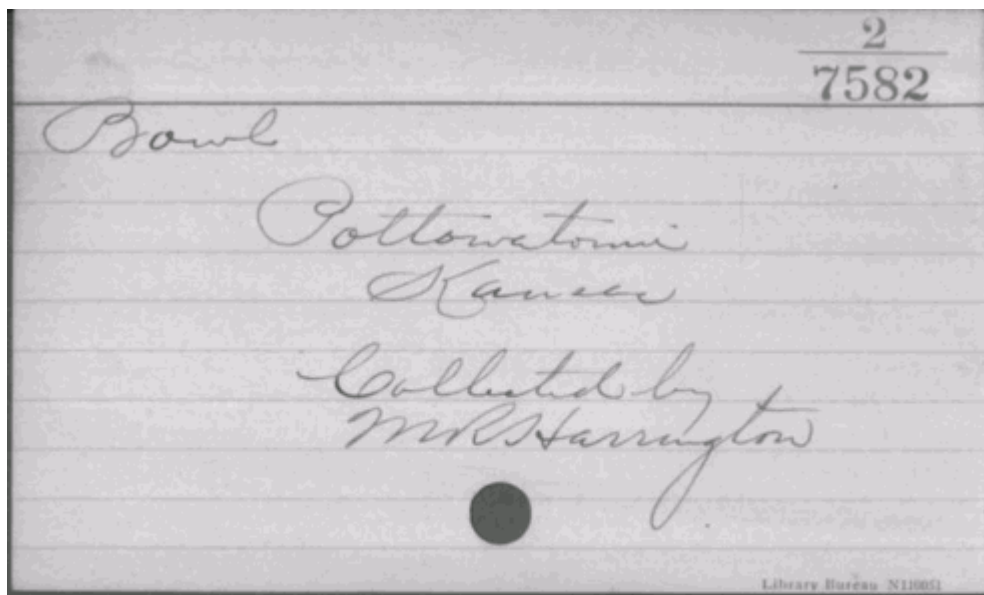 2
7582
Bowl
Pottowatomi
Kansas
Collected by
MRSHarrington
Library Bureau N110051